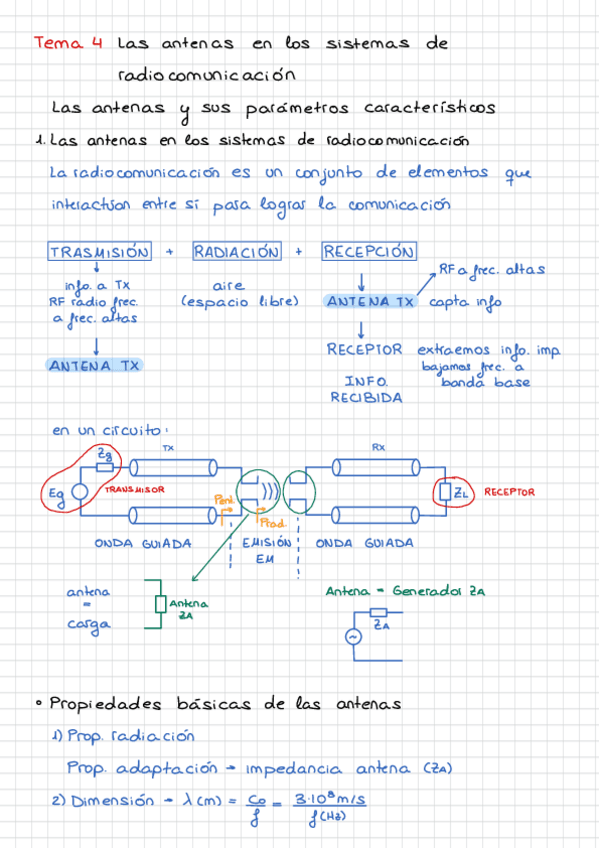 Tema 4 Las antenas en los sistemas de
radiocomunicación
Las antenas y sus parámetros característicos
1. Las antenas en los sistemas de radiocomunicación
La radiocomunicación es un conjunto de elementos que
interactúan entre sí para lograr la comunicación
TRASMISIÓN + RADIACIÓN + RECEPCIÓN
RF a frec. altas
info. a TX
RF radio frec.
a frec. altas
aire
(espacio libre)
ANTENA TX capta info
ANTENA TX
RECEPTOR extraemos info. imp
bajamos frec. a
banda base
INFO.
RECIBIDA
en un circuito:
Zg
TX
RX
Eg
TRANSMISOR
Pent.
Prad.
ZL
RECEPTOR
ONDA GUIADA
EMISIÓN
EM
ONDA GUIADA
antena
=
carga
Antena
ZA
Antena = Generador ZA
ZA
• Propiedades básicas de las antenas
1) Prop. radiación
Prop. adaptación → impedancia antena (ZA)
2) Dimensión → λ (m) = C0/f = 3·10⁸ m/s / f(Hz)